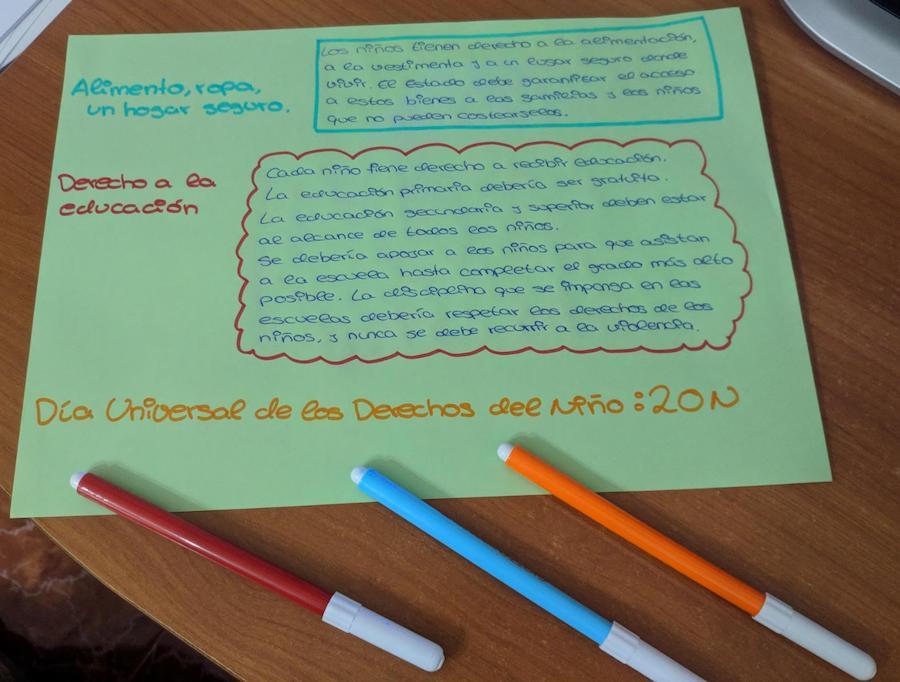 Alimento, ropa,
un hogar seguro.
Los niños tienen derecho a la alimentación,
a la vestimenta y a un lugar seguro donde
vivir. El estado debe garantizar el acceso
a estos bienes a las familias y los niños
que no pueden costearselos.
Derecho a la
educación
Cada niño tiene derecho a recibir educación.
La educación primaria debería ser gratuita.
La educación secundaria y superior deben estar
al alcance de todos los niños.
Se debería apoyar a los niños para que asistan
a la escuela hasta completar el grado más alto
posible. La disciplina que se imponga en las
escuelas debería respetar los derechos de los
niños, y nunca se debe recurrir a la violencia.
Día Universal de los Derechos del Niño : 20N